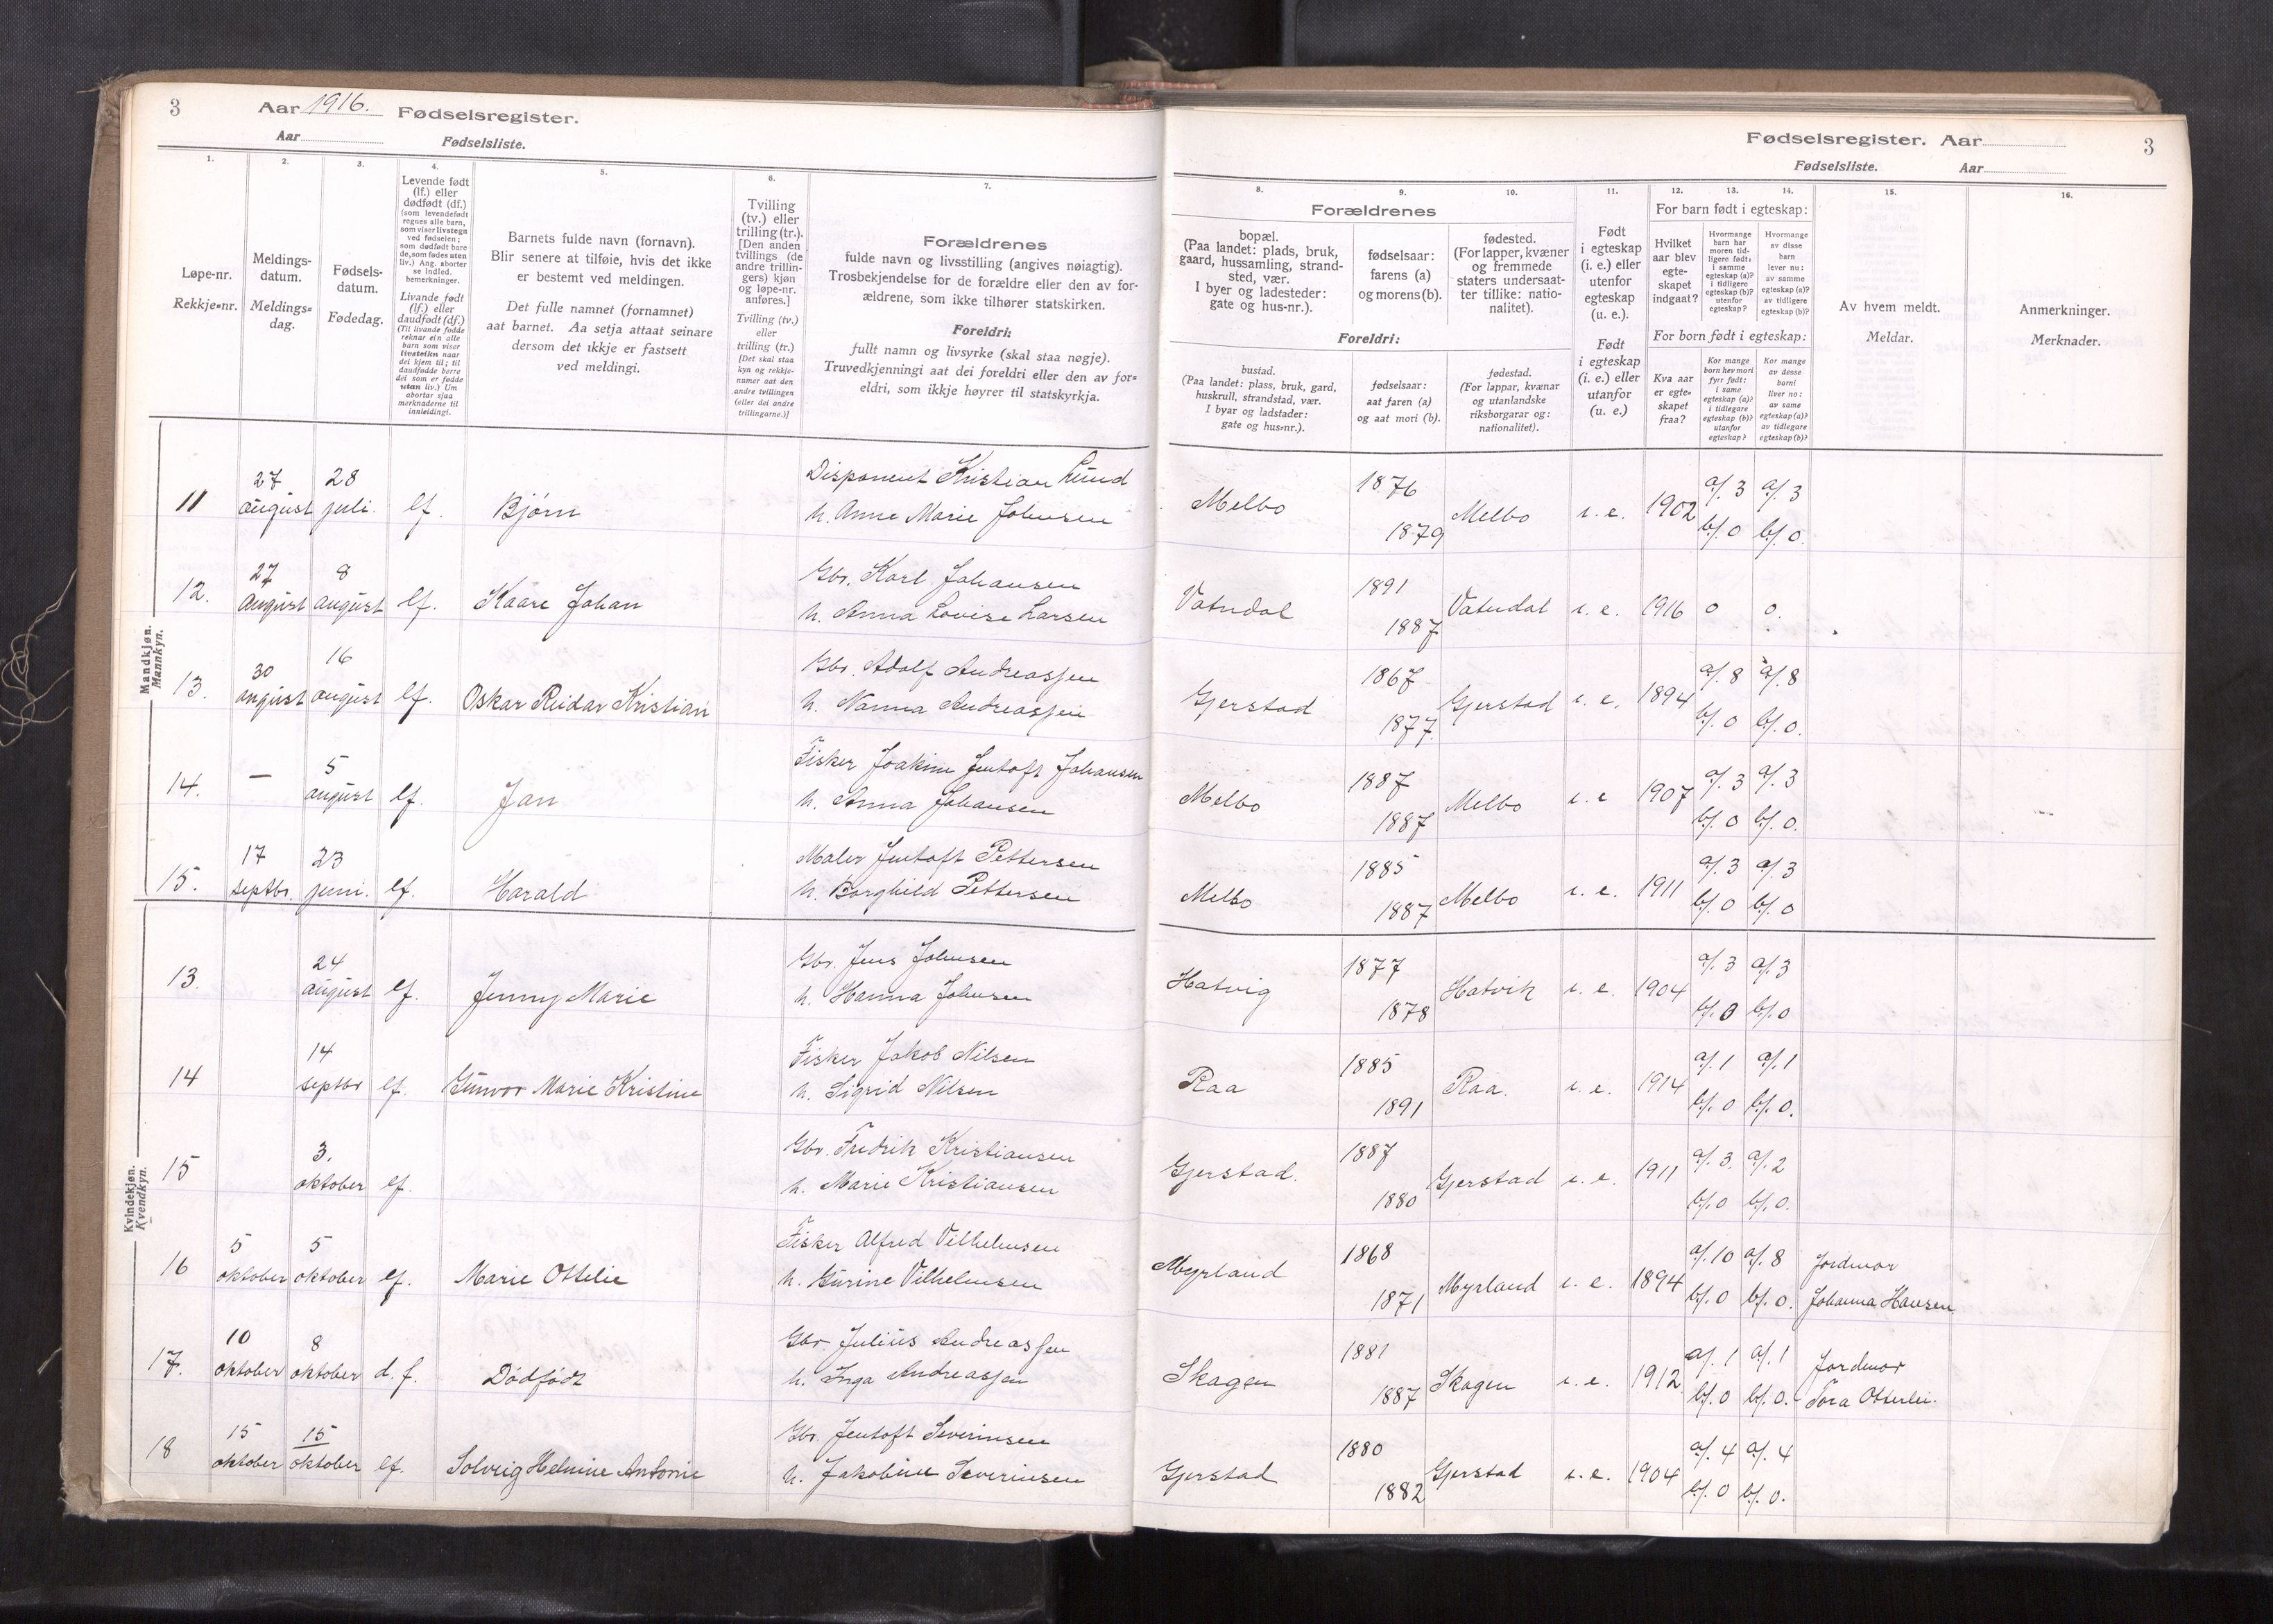 3 Aar 1916. Fødselsregister.
Aar Fødselsliste.
1. 2. 3. 4. 5. 6. 7.
Løpe-nr.
Rekkje-nr.
Meldings-
datum.
Meldings-
dag.
Fødsels-
datum.
Fødedag.
Levende født
(lf.) eller
dødfødt (df.)
(som levendefødt
regnes alle barn,
som viser livstegn
ved fødselen;
som dødfødt bare
de, som fødes uten
liv.) Ang. aborter
se indled.
bemerkninger.
Livande født
(lf.) eller
daudfødt (df.)
(Til livande fødde
reknar ein alle
born som viser
livsteikn naar
dei kjem til; til
daudfødde berre
dei som er fødde
utan liv.) Um
abortar sjaa
merknaderne til
innleidingi.
Barnets fulde navn (fornavn).
Blir senere at tilføie, hvis det ikke
er bestemt ved meldingen.
Det fulle namnet (fornamnet)
aat barnet. Aa setja attaat seinare
dersom det ikkje er fastsett
ved meldingi.
Tvilling
(tv.) eller
trilling (tr.).
[Den anden
tvillings (de
andre trillin-
gers) kjøn
og løpe-nr.
anføres.]
Tvilling (tv.)
eller
trilling (tr.)
[Det skal staa
kyn og rekkje-
numer aat den
andre tvillingen
(eller dei andre
trillingarne.)]
Forældrenes
fulde navn og livsstilling (angives nøiagtig).
Trosbekjendelse for de forældre eller den av for-
ældrene, som ikke tilhører statskirken.
Foreldri:
fullt namn og livsyrke (skal staa nøgje).
Truvedkjenningi aat dei foreldri eller den av for-
eldri, som ikkje høyrer til statskyrkja.
Fødselsregister. Aar 3
Fødselsliste. Aar
8. 9. 10. 11. 12. 13. 14. 15. 16.
Forældrenes
bopæl.
(Paa landet: plads, bruk,
gaard, hussamling, strand-
sted, vær.
I byer og ladesteder:
gate og hus-nr.).
fødselsaar:
farens (a)
og morens (b).
fødested.
(For lapper, kvæner
og fremmede
staters undersaat-
ter tillike: natio-
nalitet).
Foreldri:
bustad.
(Paa landet: plass, bruk, gard,
huskrull, strandstad, vær.
I byar og ladstader:
gate og hus-nr.).
fødselsaar:
aat faren (a)
og aat mori (b).
fødestad.
(For lappar, kvænar
og utanlandske
riksborgarar og:
nationalitet).
Født
i egteskap
(i. e.) eller
utenfor
egteskap
(u. e.).
Født
i egteskap
(i. e.) eller
utanfor
(u. e.)
For barn født i egteskap:
Hvilket
aar blev
egte-
skapet
indgaat?
Hvormange
barn har
moren tid-
ligere født:
i samme
egteskap (a)?
i tidligere
egteskap (b)?
utenfor
egteskap?
Hvormange
av disse
barn
lever nu:
av samme
egteskap (a)?
av tidligere
egteskap (b)?
For born født i egteskap:
Kva aar
er egte-
skapet
fraa?
Kor mange
born hev mori
fyrr født:
i same
egteskap (a)?
i tidlegare
egteskap (b)?
utanfor
egteskap?
Kor mange
av desse
borni
liver no:
av same
egteskap (a)?
av tidlegare
egteskap (b)?
Av hvem meldt.
Meldar.
Anmerkninger.
Merknader.
Mandkjøn.
Mannkyn.
27 28 Disponent Kristian Lund 1876 a/. 3 a/. 3
11 august juli. lf. Bjørn h. Anne Marie Johnsen Melbo 1879 Melbo i. e. 1902 b/. 0 b/. 0.
27 8 Gbr. Karl Johansen 1891
12. August august lf. Kaare Johan h. Anna Lovise Larsen Vatndal 1887 Vatndal i. e. 1916 0 0.
30 16 Gbr. Adolf Andreassen 1867 a/. 8 a/. 8
13. august august lf. Oskar Reidar Kristian h. Nanna Andreassen Gjerstad 1877. Gjerstad i. e. 1894 b/. 0 b/. 0.
5 Fisker Joakim Jentoft Johansen 1887 a/. 3 a/. 3
14. — august lf. Jan h. Anna Johansen Melbo 1887 Melbo i. e 1907 b/. 0 b/. 0.
17 23 Maler Jentoft Pettersen 1885 a/. 3 a/. 3
15. septbr. juni. lf. Harald h. Borghild Pettersen Melbo 1887 Melbo i. e. 1911 b/. 0 b/. 0
Kvindekjøn.
Kvendkyn.
24 Gbr. Jens Johnsen 1877 a/. 3 a/. 3
13. august lf. Jenny Marie h. Hanna Johnsen Hatvig 1878 Hatvik i. e. 1904 b/. 0 b/. 0
14 Fisker Jakob Nilsen 1885 a/. 1 a/. 1
14 septbr lf. Gunvor Marie Kristine h. Sigrid Nilsen Raa 1891 Raa. i. e. 1914 b/. 0 b/. 0.
3. Gbr. Fredrik Kristiansen 1887 a/. 3. a/. 2
15 oktober lf. h. Marie Kristiansen Gjerstad. 1880 Gjerstad i. e. 1911 b/. 0 b/. 0.
5 5 Fisker Alfred Vilhelmsen 1868 a/. 10 a/. 8 Jordmor
16 oktober oktober lf. Marie Ottilie h. Gurine Vilhelmsen Myrland 1871 Myrland i. e. 1894 b/. 0 b/. 0. Johanna Hansen
10 8 Gbr. Julius Andreassen 1881 a/. 1 a/. 1 Jordmor
17. oktober oktober d. f. Dødfødt h. Inga Andreassen Skagen 1887 Skagen i. e. 1912. b/. 0 b/. 0. Tora Otterlei.
15 15 Gbr. Jentoft Severinsen 1880 a/. 4 a/. 4
18 oktober oktober lf. Solveig Helmine Antonie h. Jakobine Severinsen Gjerstad 1882 Gjerstad i. e. 1904 b/. 0 b/. 0.